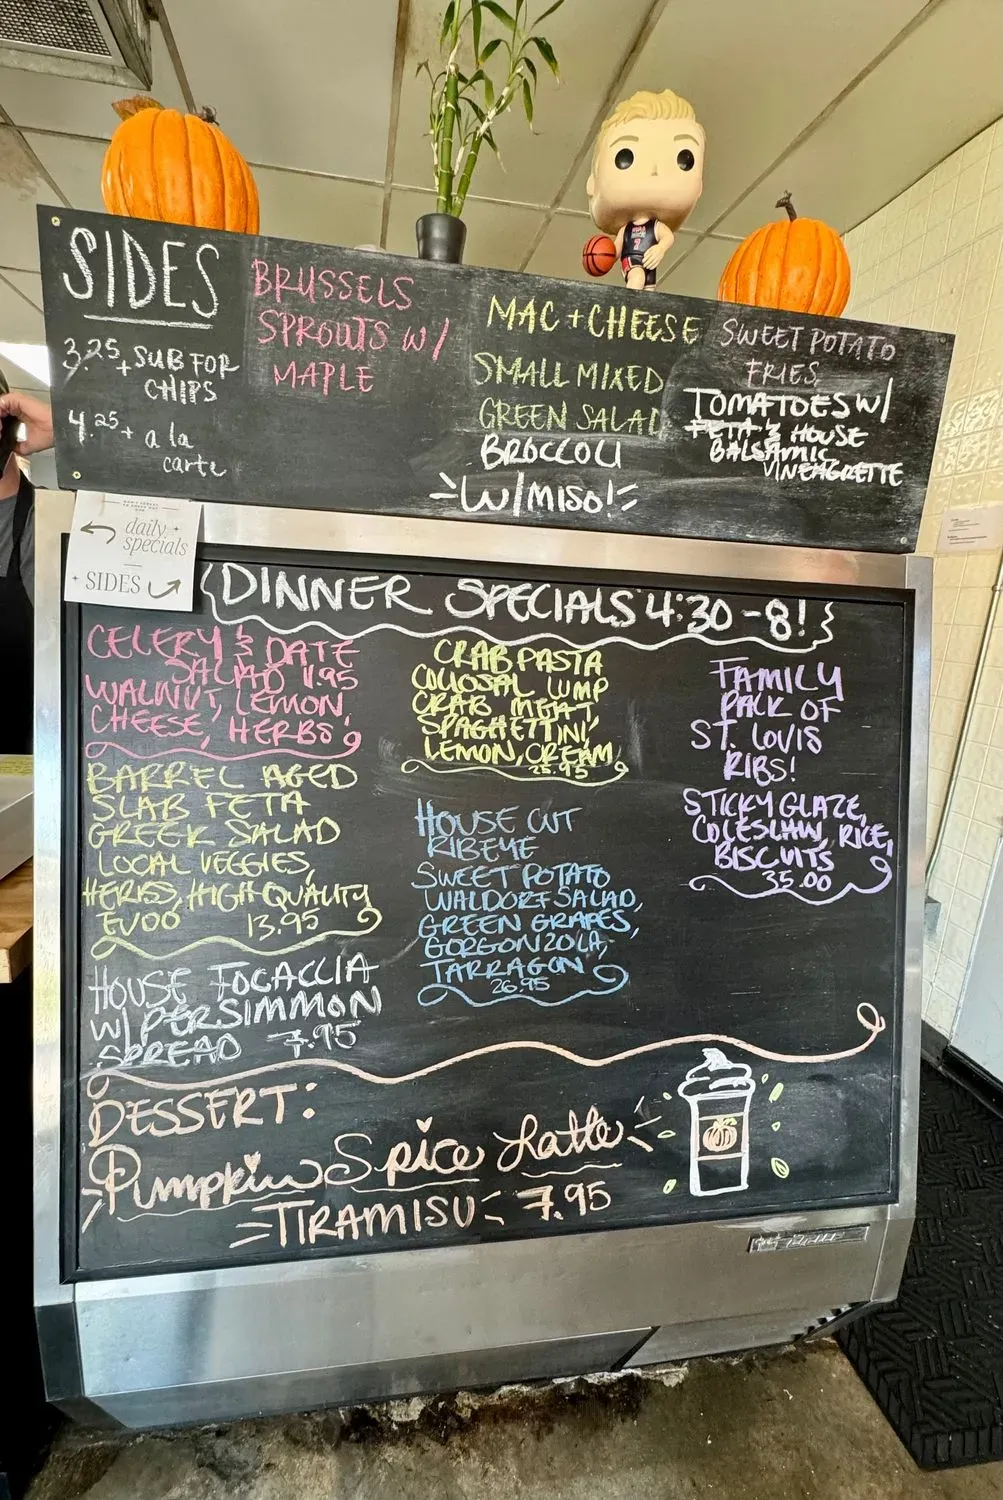 SIDES
3.25+ SUB FOR
CHIPS
4.25+ a la
carte
BRUSSELS
SPROUTS W/
MAPLE
MAC + CHEESE
SMALL MIXED
GREEN SALAD
BROCCOLI
W/MISO!
SWEET POTATO
FRIES
TOMATOES W/
FETA & HOUSE
BALSAMIC
VINEAGRETTE
daily
specials
SIDES
DINNER SPECIALS 4:30-8!
CELERY & DATE
SALAD 11.95
WALNUT, LEMON,
CHEESE, HERBS
BARREL AGED
SLAB FETA
GREEK SALAD
LOCAL VEGGIES,
HERBS, HIGH QUALITY
EVOO 13.95
HOUSE FOCACCIA
W/ PERSIMMON
SPREAD 7.95
CRAB PASTA
COLOSAL LUMP
CRAB MEAT,
SPAGHETTINI,
LEMON, CREAM
25.95
HOUSE CUT
RIBEYE
SWEET POTATO
WALDORF SALAD,
GREEN GRAPES,
GORGONZOLA,
TARRAGON
26.95
FAMILY
PACK OF
ST. LOUIS
RIBS!
STICKY GLAZE,
COLESLAW, RICE,
BISCUITS
35.00
DESSERT:
Pumpkin Spice Latte
TIRAMISU 7.95